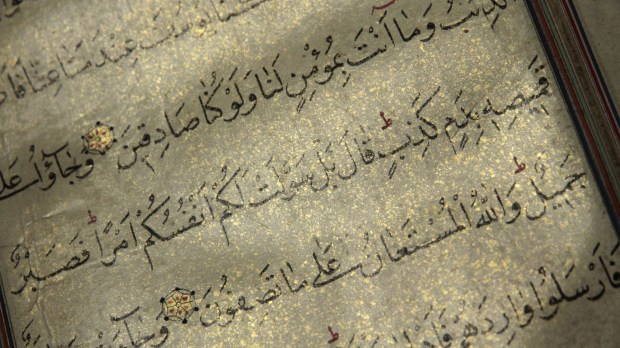 عِنْدَ مَتَاعِنَا فَا
وَمَا اَنْتَ بِمُؤْمِنٍ لَنَا وَلَوْ كُنَّا صَادِقِينَ وَجَاؤُا عَلٰ
قَمِيصِهِ بِدَمٍ كَذِبٍ قَالَ بَلْ سَوَّلَتْ لَكُمْ اَنْفُسُكُمْ اَمْرًا فَصَبْرٌ
جَمِيلٌ وَاللّٰهُ الْمُسْتَعَانُ عَلٰى مَا تَصِفُونَ
فَاَرْسَلُوا وَارِدَهُمْ